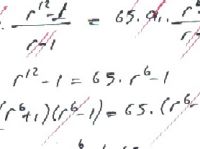 . r¹²-1 / r-1 = 65. a₁. r⁶
r¹² - 1 = 65. r⁶ - 1
(r⁶+1)(r⁶-1) = 65. (r⁶-